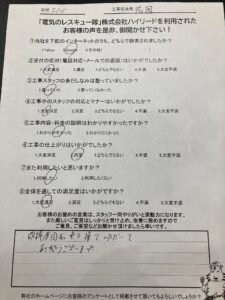 「電気のレスキュー隊」株式会社ハイリードを利用された
お客様の声を是非、御聞かせ下さい！
①当社を下記のインターネットのうち、どちらで検索されましたか？
1.Yahoo 2.Google 3.その他(
②受付の応対(電話対応・メールでの返信)はいかがでしたか？
1.大変満足 2.満足 3.どちらでもない 4.不満 5.大変不満
③工事スタッフの身だしなみは整っていましたか？
1.整っていた 2.整っていなかった
④工事中のスタッフの対応とマナーはいかがでしたか？
1.大変満足 2.満足 3.どちらでもない 4.不満 5.大変不満
⑤工事内容・料金の説明はわかりやすかったですか？
1.わかりやすかった 2.わかりにくかった
⑥工事の仕上がりはいかがでしたか？
1.大変満足 2.満足 3.どちらでもない 4.不満 5.大変不満
⑦また利用したいと思いますか？
1.利用したい 2.利用したくない
⑧全体を通しての満足度はいかがですか？
1.大変満足 2.満足 3.どちらでもない 4.不満 5.大変不満
お客様のお褒めの言葉は、スタッフ一同やりがいと原動力になります。
また厳しいご意見はしっかりと受け止め、改善に努めますので
ご意見、ご要望などお聞かせ頂けましたら幸いです。
故障原因
ありがとうございました
弊社のホームページにお客様のアンケートとして掲載させて頂いてもよろしいでしょうか？